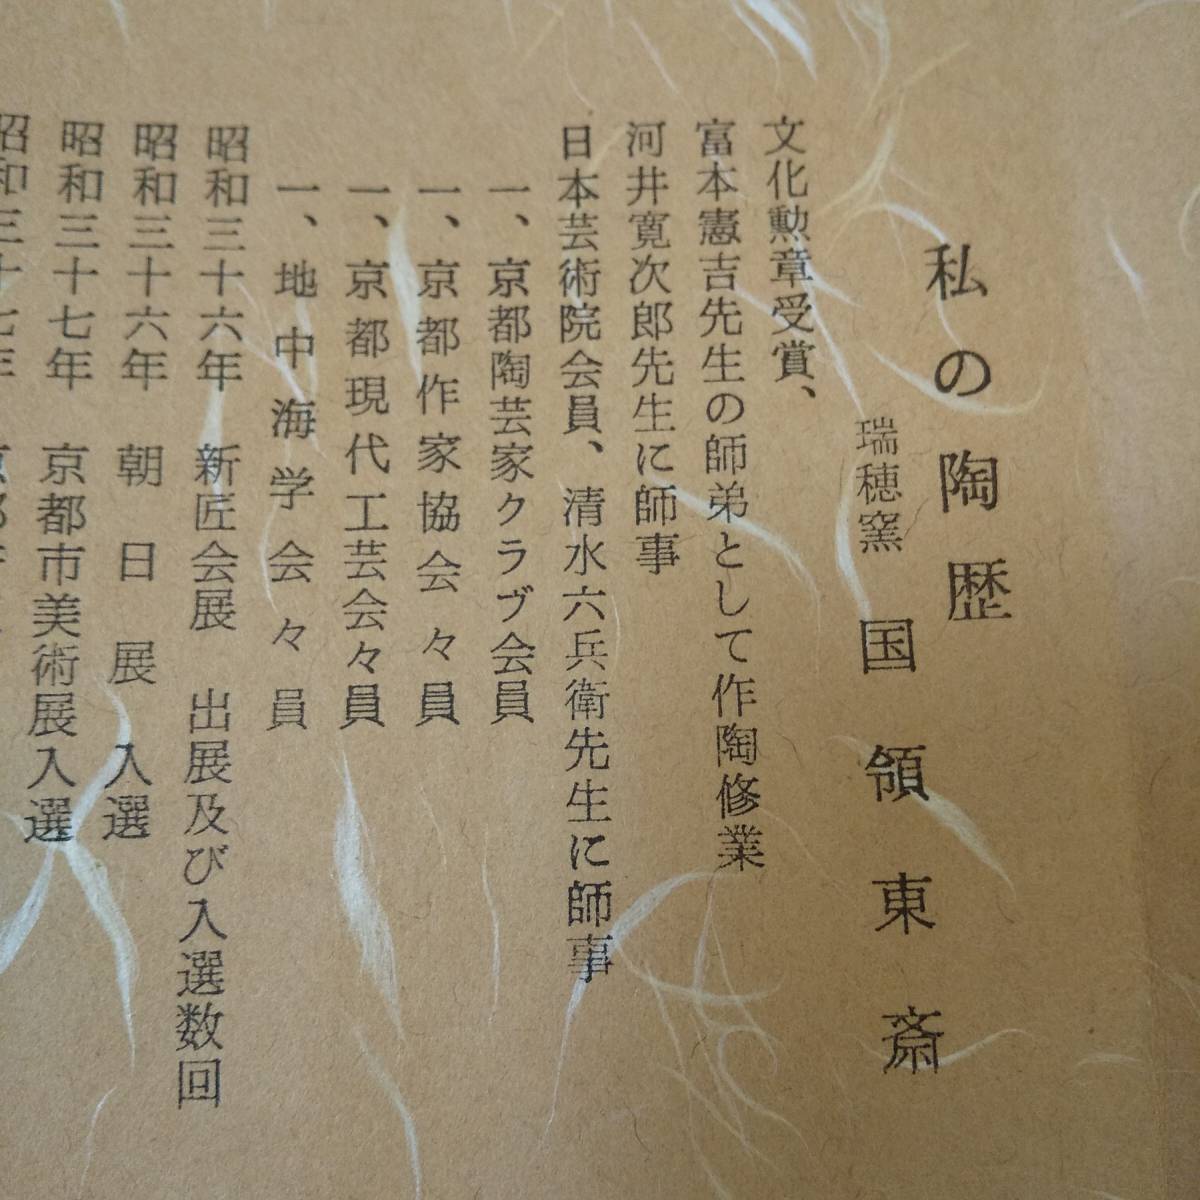 私の陶歴
瑞穂窯 国領東斎
文化勲章受賞、
富本憲吉先生の師弟として作陶修業
河井寛次郎先生に師事
日本芸術院会員、清水六兵衛先生に師事
一、京都陶芸家クラブ会員
一、京都作家協会々員
一、京都現代工芸会々員
一、地中海学会々員
昭和三十六年 新匠会展 出展及び入選数回
昭和三十六年 朝日展入選
昭和三十七年 京都市美術展入選
昭和三十七年